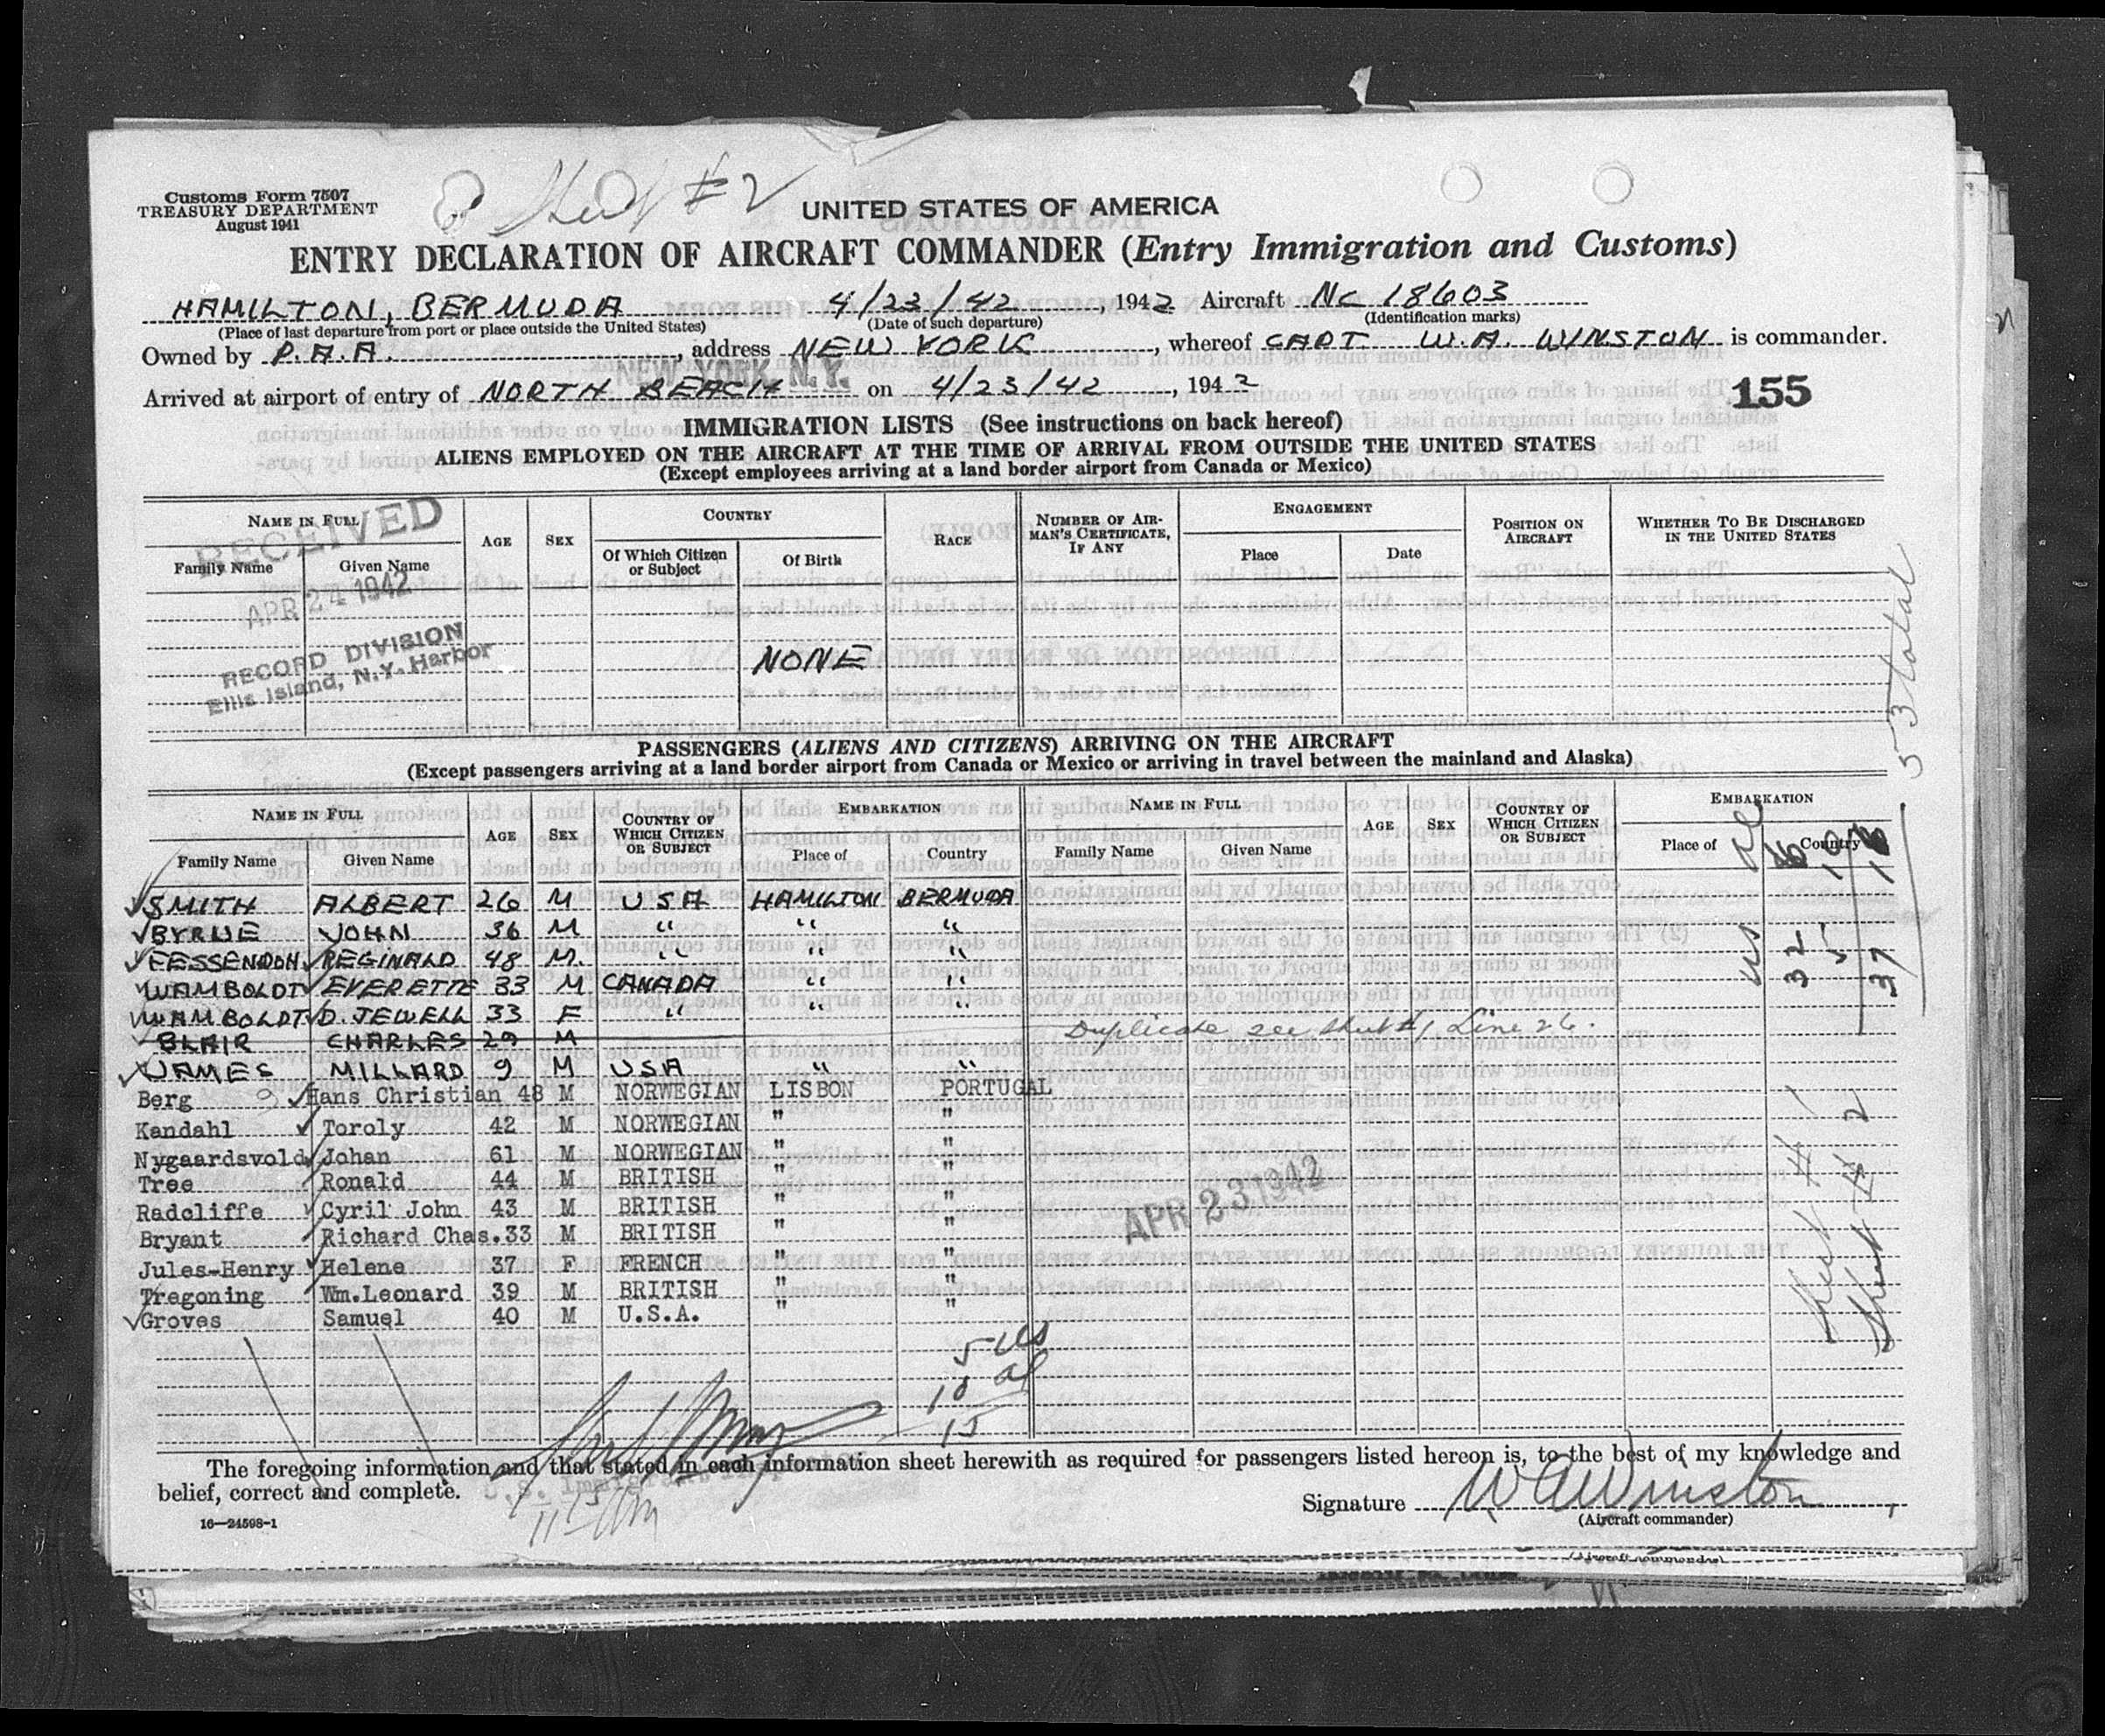 Customs Form 7507
TREASURY DEPARTMENT
August 1941
Sheet #2
UNITED STATES OF AMERICA
ENTRY DECLARATION OF AIRCRAFT COMMANDER (Entry Immigration and Customs)
HAMILTON, BERMUDA 4/23/42, 1942 Aircraft NC 18603
(Place of last departure from port or place outside the United States) (Date of such departure) (Identification marks)
Owned by P.A.A., address NEW YORK, whereof CAPT W.A. WINSTON is commander.
NEW YORK, N. Y.
Arrived at airport of entry of NORTH BEACH on 4/23/42, 1942
155
IMMIGRATION LISTS (See instructions on back hereof)
ALIENS EMPLOYED ON THE AIRCRAFT AT THE TIME OF ARRIVAL FROM OUTSIDE THE UNITED STATES
(Except employees arriving at a land border airport from Canada or Mexico)
NAME IN FULL AGE SEX COUNTRY RACE NUMBER OF AIRMAN'S CERTIFICATE, IF ANY ENGAGEMENT POSITION ON AIRCRAFT WHETHER TO BE DISCHARGED IN THE UNITED STATES
Family Name Given Name Of Which Citizen or Subject Of Birth Place Date
RECEIVED
APR 24 1942
RECORD DIVISION
Ellis Island, N.Y. Harbor
NONE
53 total
PASSENGERS (ALIENS AND CITIZENS) ARRIVING ON THE AIRCRAFT
(Except passengers arriving at a land border airport from Canada or Mexico or arriving in travel between the mainland and Alaska)
NAME IN FULL AGE SEX COUNTRY OF WHICH CITIZEN OR SUBJECT EMBARKATION NAME IN FULL AGE SEX COUNTRY OF WHICH CITIZEN OR SUBJECT EMBARKATION
Family Name Given Name Place of Country Family Name Given Name Place of Country
SMITH ALBERT 26 M USA HAMILTON BERMUDA
BYRNE JOHN 36 M " " "
FESSENDOH REGINALD 48 M. " " "
WAMBOLDT EVERETTE 33 M CANADA " "
WAMBOLDT D. JEWELL 33 F " " "
BLAIR CHARLES 29 M Duplicate see sheet #1 Line 26.
JAMES MILLARD 9 M USA " "
Berg Hans Christian 48 M NORWEGIAN LISBON PORTUGAL
Kandahl Toroly 42 M NORWEGIAN " "
Nygaardsvold Johan 61 M NORWEGIAN " "
Tree Ronald 44 M BRITISH " "
Radcliffe Cyril John 43 M BRITISH " "
Bryant Richard Chas. 33 M BRITISH " "
Jules-Henry Helene 37 F FRENCH " "
Tregoning Wm.Leonard 39 M BRITISH " "
Groves Samuel 40 M U.S.A. " "
APR 23 1942
US 32 5 37
Sheet #1
Sheet #2
5 US
10 al
15
The foregoing information and that stated in each information sheet herewith as required for passengers listed hereon is, to the best of my knowledge and
belief, correct and complete.
Signature W A Winston
(Aircraft commander)
16—24598-1